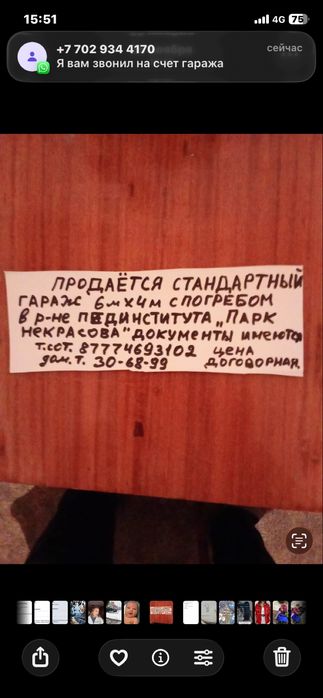 15:51
4G 75
+7 702 934 4170
сейчас
Я вам звонил на счет гаража
ПРОДАЁТСЯ СТАНДАРТНЫЙ
ГАРАЖ 6мх4м С ПОГРЕБОМ
в р-не ПЕДИНСТИТУТА „ПАРК
НЕКРАСОВА" ДОКУМЕНТЫ имеются
т.сот. 87774693102 ЦЕНА
дом.т. 30-68-99 ДОГОВОРНАЯ